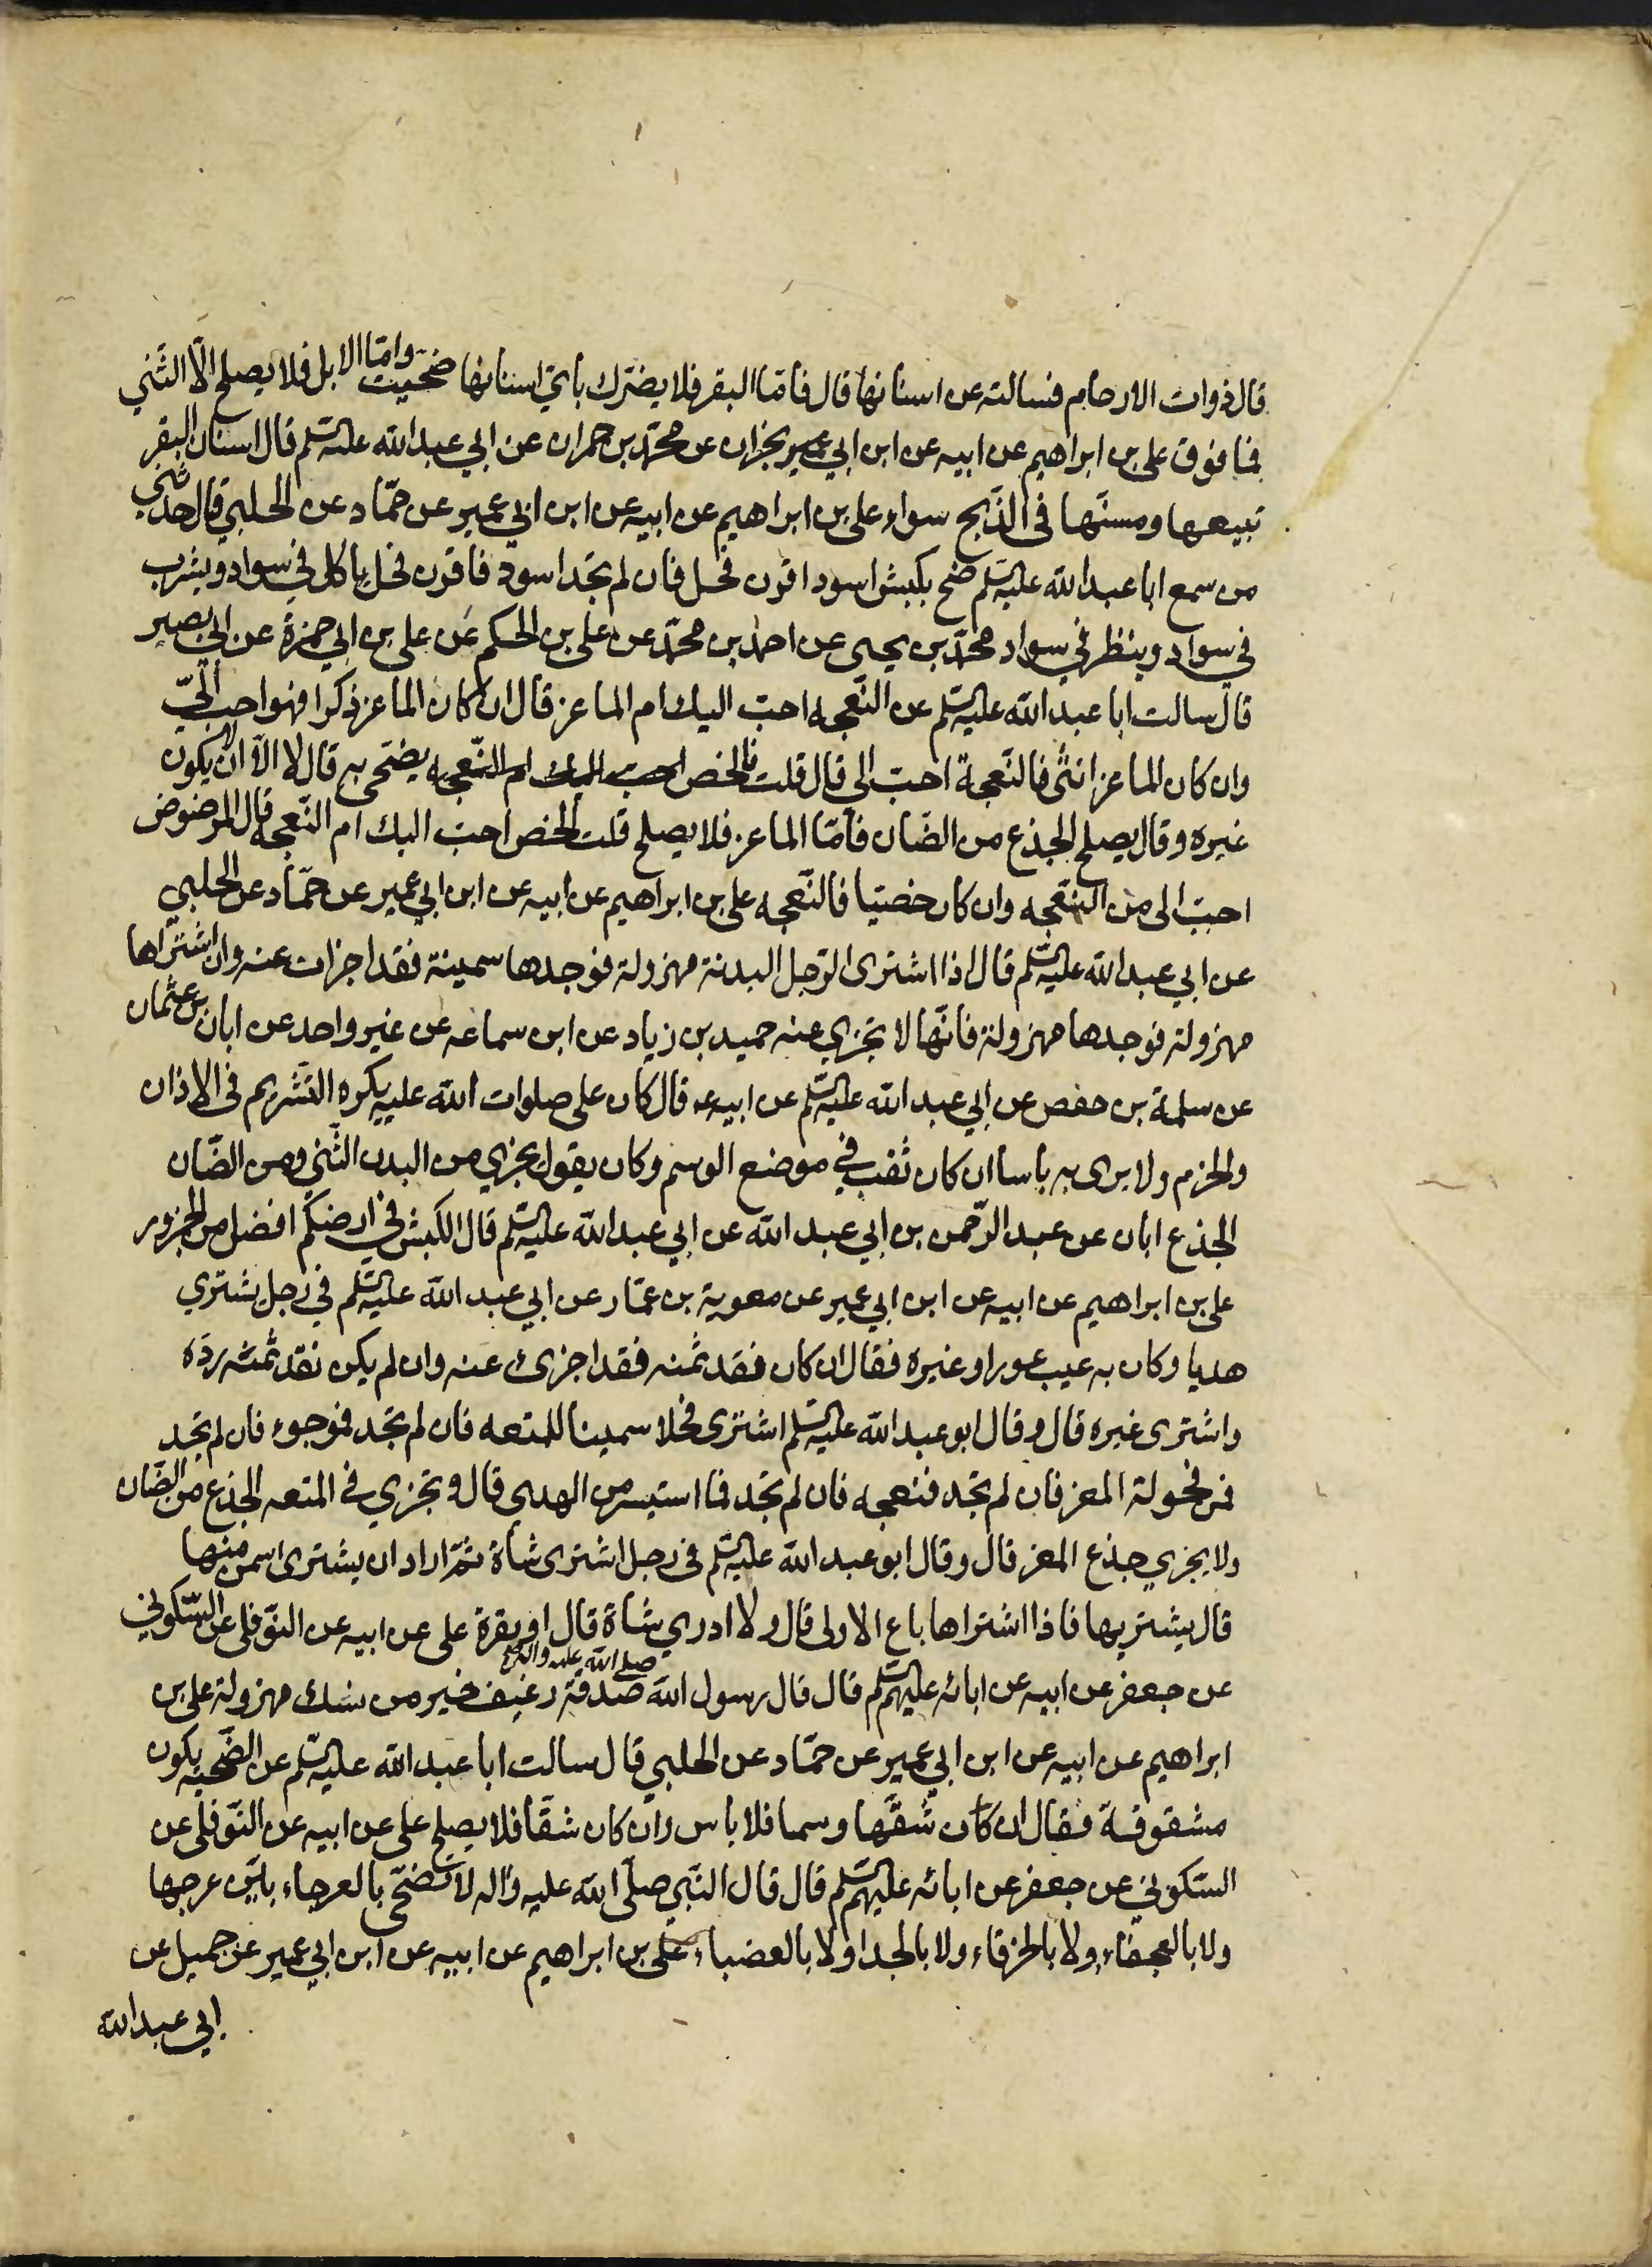 قال ذوات الارحام فسالته عن اسنانها قال فامّا البقر فلا يضرّك بايّ اسنانها ضحّيت وامّا الابل فلا يصلح الّا الثّني
فما فوق علي بن ابراهيم عن ابيه عن ابن ابي عمير عن محمّد بن حمران عن ابي عبد الله عليه السّلم قال اسنان البقر
تبيعها ومسنّها في الذّبح سواء علي بن ابراهيم عن ابيه عن ابن ابي عمير عن حمّاد عن الحلبي قال حدثني
من سمع ابا عبد الله عليه السّلم ضح بكبش اسود اقرن فحل فان لم تجد اسود فاقرن فحل ياكل في سواد ويشرب
في سواد وينظر في سواد محمّد بن يحيى عن احمد بن محمّد عن علي بن الحكم عن علي بن ابي حمزة عن ابي بصير
قال سالت ابا عبد الله عليه السّلم عن النّعجه احبّ اليك ام الماعز قال ان كان الماعز ذكرا فهو احب اليّ
وان كان الماعز انثى فالنّعجة احبّ الي قال قلت فالخصي يضحّى به قال لا الّا ان لا يكون
غيره وقال يصلح الجذع من الضّان فامّا الماعز فلا يصلح قلت الخصي احبّ اليك ام النّعجه قال المرضوض
احبّ الى من النّعجه وان كان خصيّا فالنّعجه علي بن ابراهيم عن ابيه عن ابن ابي عمير عن حمّاد عن الحلبي
عن ابي عبد الله عليه السّلم قال اذا اشترى الرّجل البدنة مهزولة فوجدها سمينة فقد اجزات عنه وان اشتراها
مهزولة فوجدها مهزولة فانّها لا تجزي عنه حميد بن زياد عن ابن سماعه عن غير واحد عن ابان بن عثمان
عن سلمة بن حفص عن ابي عبد الله عليه السّلم عن ابيه قال كان علي صلوات الله عليه يكره التّشريم في الاذان
والخرم ولا يرى به باسا ان كان ثقب في موضع الوسم وكان يقول يجزي من البدن الثّني ومن الضّان
الجذع ابان عن عبد الرّحمن بن ابي عبد الله عن ابي عبد الله عليه السّلم قال الكبش في ارضكم افضل من الجزور
علي بن ابراهيم عن ابيه عن ابن ابي عمير عن معوية بن عمّار عن ابي عبد الله عليه السّلم في رجل يشتري
هديا وكان به عيب عور او غيره فقال ان كان نقد ثمنه فقد اجزى عنه وان لم يكن نقد ثمنه ردّه
واشترى غيره قال وقال ابو عبد الله عليه السّلم اشترى فحلا سمينا للمتعه فان لم تجد فموجوء فان لم تجد
فمن فحولة المعز فان لم تجد فنعجه فان لم تجد فما استيسر من الهدي قال وتجزي في المتعه الجذع من الضّان
ولا يجزي جذع المعز قال وقال ابو عبد الله عليه السّلم في رجل اشترى شاة ثمّ اراد ان يشترى اسمن منها
قال يشتريها فاذا اشتراها باع الاولى قال ولا ادري شاة قال او بقرة علي عن ابيه عن النّوفلي عن السّكوني
عن جعفر عن ابيه عن ابائه عليهم السّلم قال قال رسول الله صلى الله عليه واله صدقة رغيف خير من نسك مهزولة علي بن
ابراهيم عن ابيه عن ابن ابي عمير عن حمّاد عن الحلبي قال سالت ابا عبد الله عليه السّلم عن الضّحيّه يكون
مشقوقة فقال ان كان شقّها وسما فلا باس وان كان شقّا فلا يصلح علي عن ابيه عن النّوفلي عن
السّكوني عن جعفر عن ابائه عليهم السّلم قال قال النّبي صلّى الله عليه واله لا تضحّى بالعرجاء بيّن عرجها
ولا بالعجفاء ولا بالخرقاء ولا بالجدا ولا بالعضباء علي بن ابراهيم عن ابيه عن ابن ابي عمير عن جميل عن
ابي عبد الله